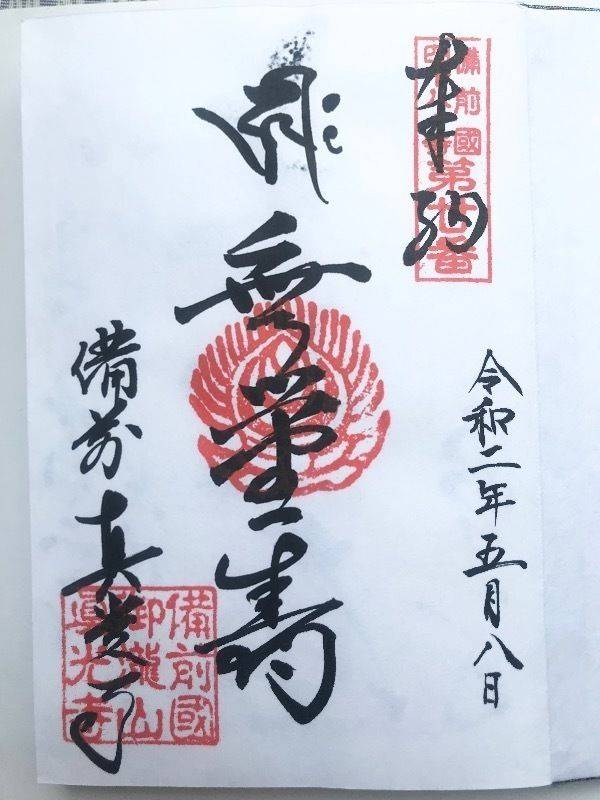 奉納
備前國
第世番
令和二年五月八日
無量寿
備前
真光寺
備前國
御瀧山
眞光寺